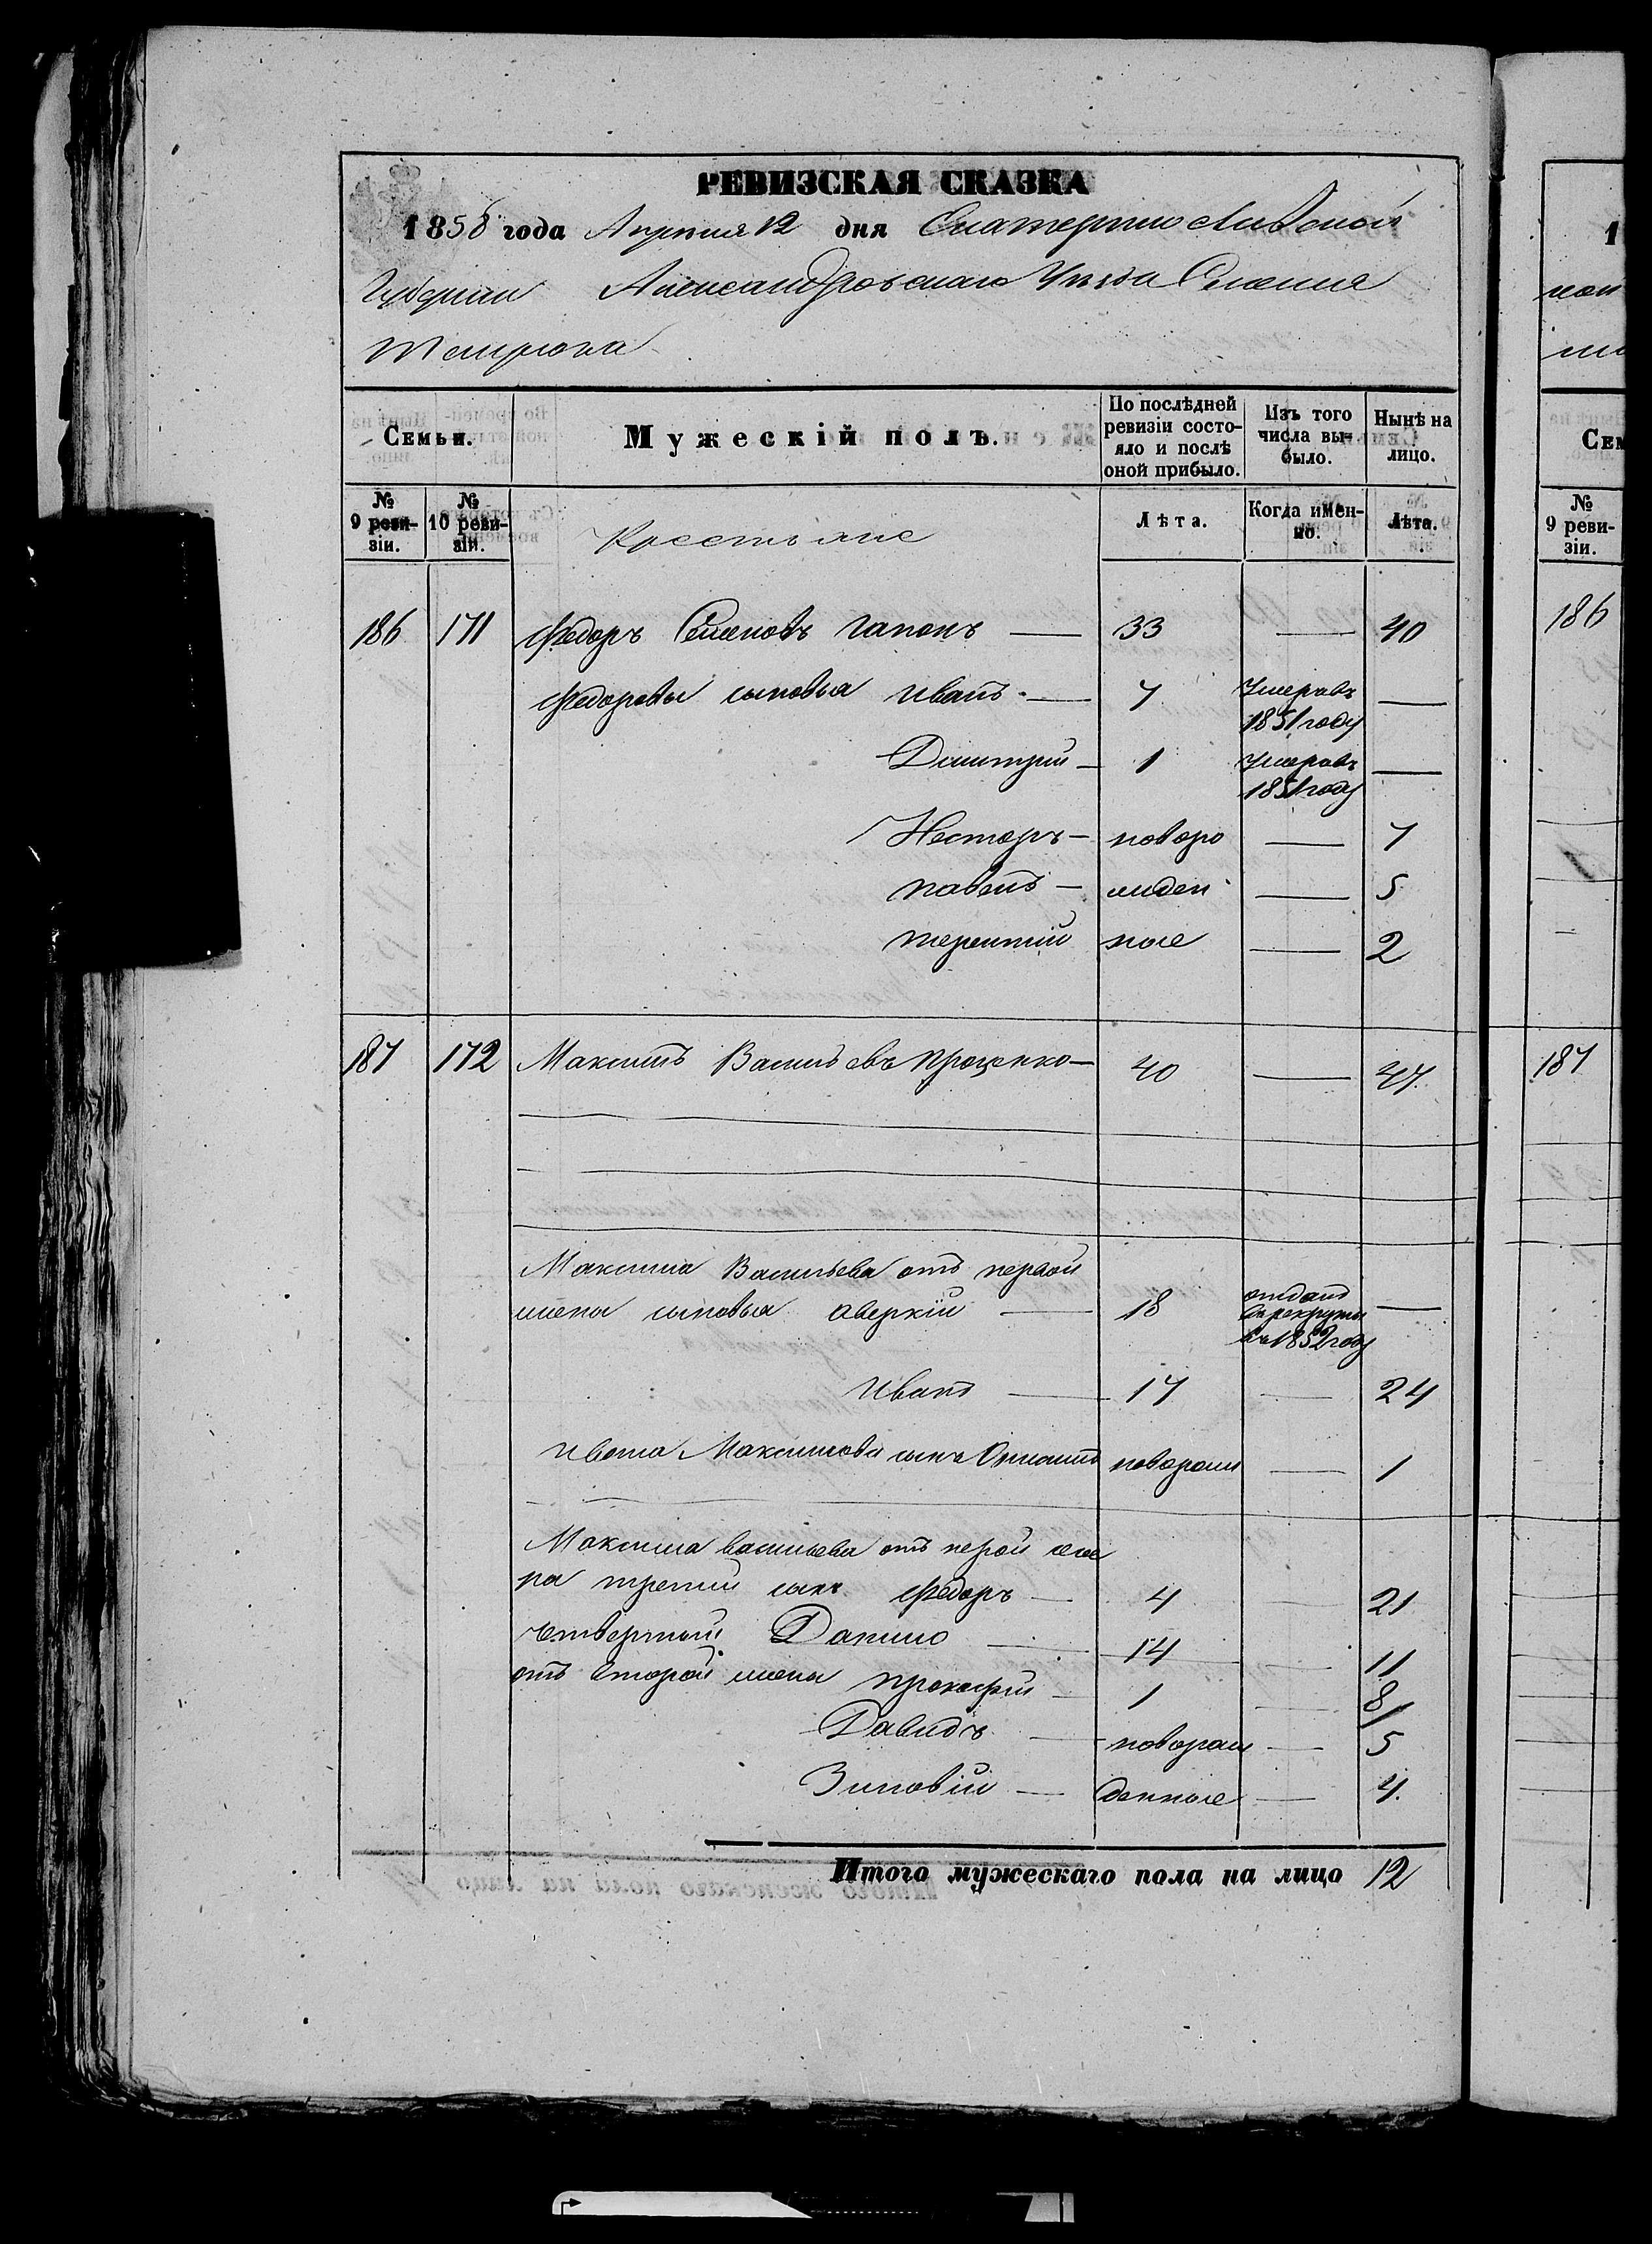 РЕВИЗСКАЯ СКАЗКА
1858 года Апреля 12 дня Екатеринославской
Губернии Александровскаго Уезда Селения
Темрюка
Семьи.
Мужескій полъ.
По послѣдней ревизіи состояло и послѣ оной прибыло.
Изъ того числа выбыло.
Нынѣ на лицо.
№ 9 ревизіи.
№ 10 ревизіи.
Крестьяне
Лѣта.
Когда именно.
Лѣта.
186 171 Федоръ Семеновъ Гапонъ 33 40
Федоровы сыновья Иванъ 7 Умеръ въ 1851 году
Дмитрий 1 Умеръ въ 1851 году
Несторъ новоро 7
Павелъ жден 5
Терентий ные 2
187 172 Максимъ Васильевъ Проценко 40 47
Максима Васильева отъ первой
жены сыновья Аверкій 18 отданъ въ рекруты въ 1852 году
Иванъ 17 24
Ивана Максимова сынъ новорожд 1
Максима Васильева отъ перой же
ны третий сынъ Федоръ 4 21
Четвертый Данило 14 11
отъ второй жены Прокофий 1 8
Давидъ новорож 5
Зиновій денные 4
Итого мужескаго пола на лицо 12
1
№ 9 ревизіи.
186
187